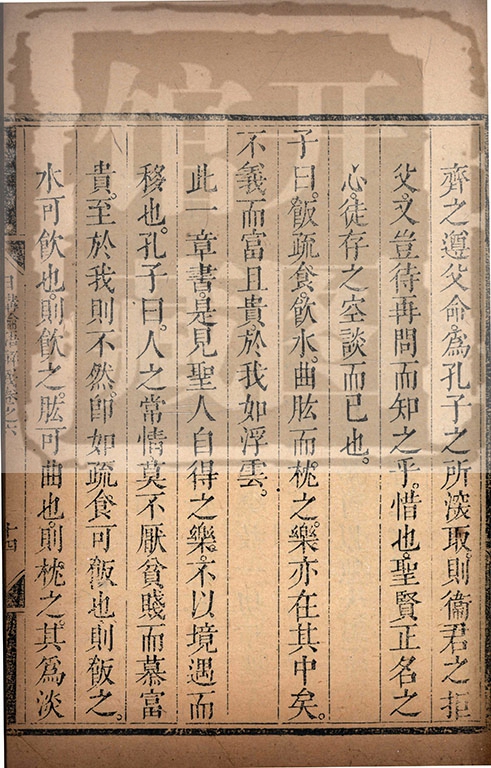 齊之遵父命。爲孔子之所深取。則衞君之拒
父。又豈待再問而知之乎。惜也。聖賢正名之
心。徒存之空談而已也。
子曰。飯疏食。飮水。曲肱而枕之。樂亦在其中矣。
不義而富且貴。於我如浮雲。
此一章書。是見聖人自得之樂。不以境遇而
移也。孔子曰。人之常情莫不厭貧賤而慕富
貴。至於我則不然。卽如疏食可飯也。則飯之。
水可飮也。則飮之。肱可曲也。則枕之。其爲淡
日講論語解義卷之六
十四